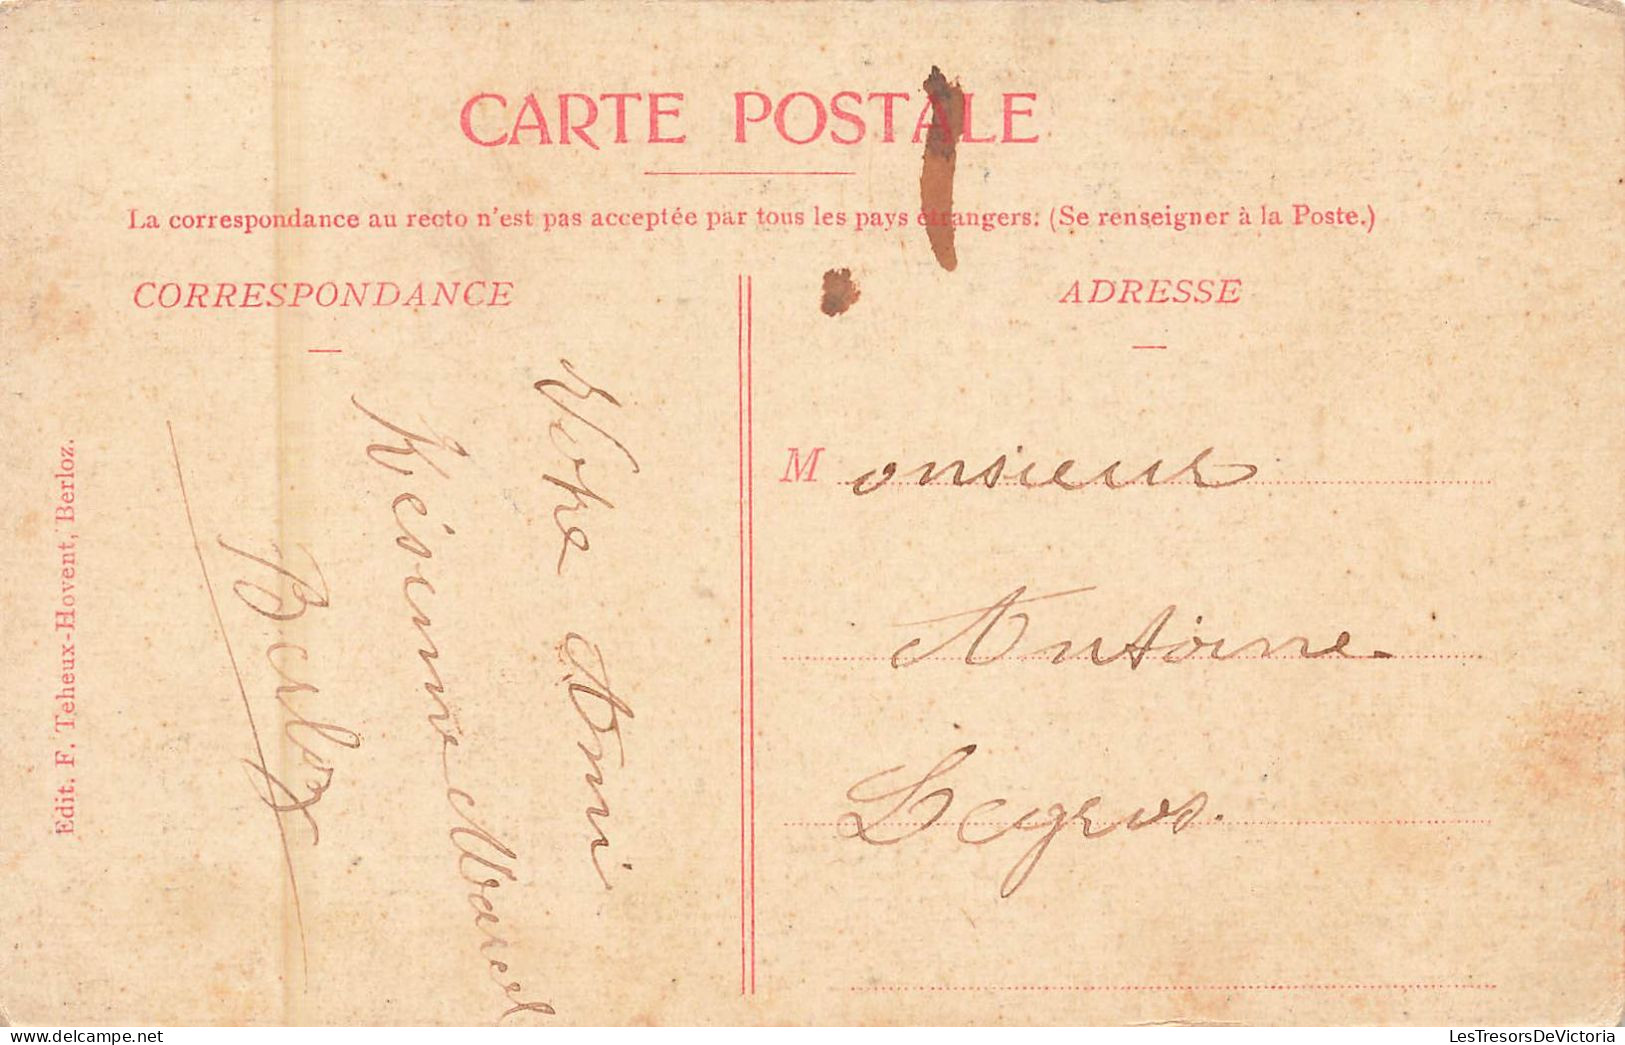 CARTE POSTALE
La correspondance au recto n'est pas acceptée par tous les pays étrangers: (Se renseigner à la Poste.)
CORRESPONDANCE
Votre Ami
Marcel
Berloz
Edit. F. Teheux-Hovent, Berloz.
ADRESSE
Monsieur
Antoine
Legros.
LesTresorsDeVictoria